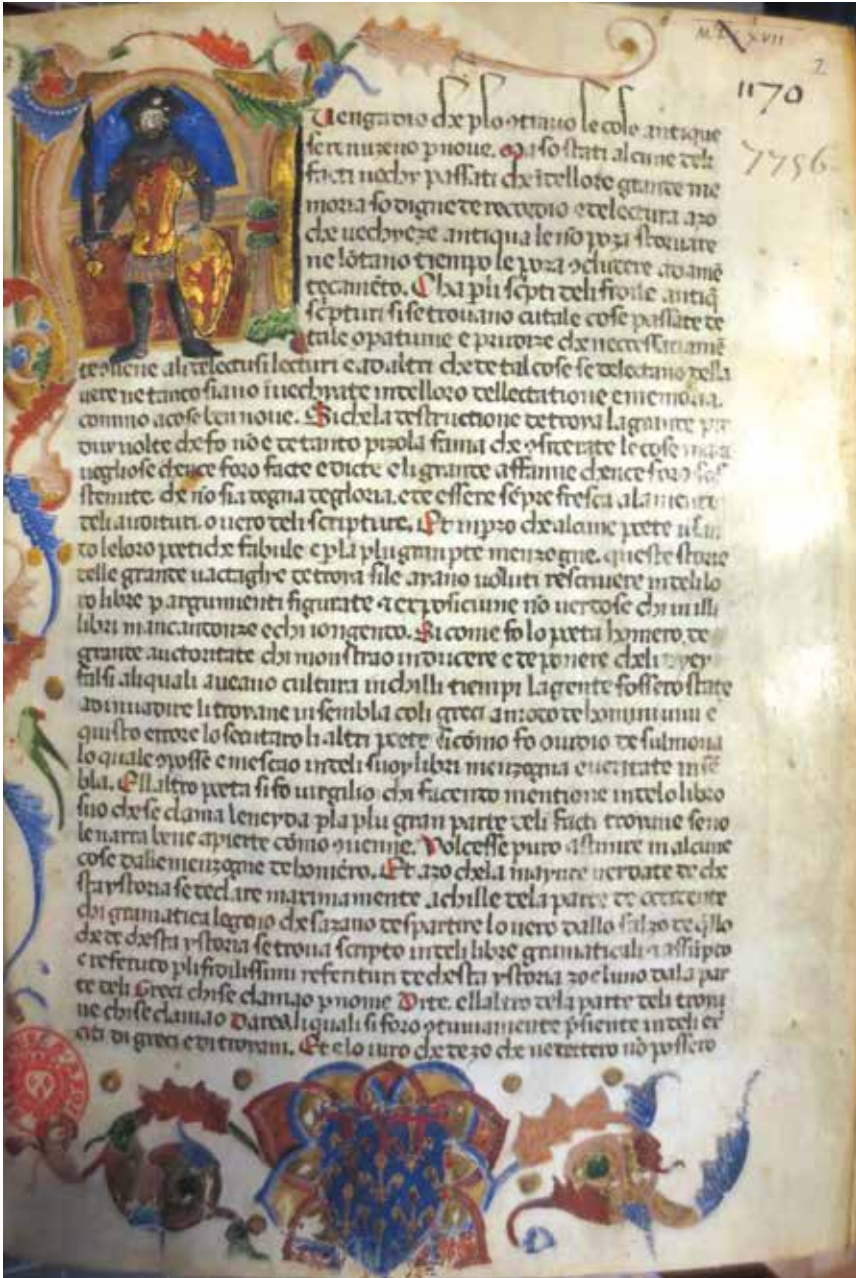 M L XVII
2
1170
7756
Uengadio che plo 9tinuo le cose antique
se renuzeno pnoue. Ma so stati alcune deli
facti uechy passati che ī telloro grande me
moria so digne de recordio e de lectura azo
che uechyeze antiqua le nō poza storuare
ne lōtano tiempo le poza 9cludere ad amē
tecamēto. Cha pli sc̄pti deli fidile antiq̄
sc̄pturi si se trouano cutale cose passate de
tale opatiune e pruoze che neccessariamē
te 9uene ali delectusi lecturi e ad altri che de tal cose se delectano della
uere ne tanco siano ī uechyate in telloro dellectatione e memoria.
commo a cose ben noue. Si che la destructione de troya la grande
duy uolte che fo nō e de tanto pizola fama che 9siderate le cose mara
uegliose chence foro facte e dicte e li grande affanne chence foro sos
stenute. che nō sia degna de gloria. e de essere sēpre fresca a la mente
deli audituri. o uero deli scripture. Et in pro che alcune poete
to le loro poetiche fabule e p la plu gran pte menzogne. queste storie
delle grande uactaglye de troya si le aiano uoluti rescriuere in deli lo
ro libre p argumienti figurate & exposiciune nō uerdose chi in illi
libri mancandonze e chi iongendo. Si come fo lo poeta homero de
grande auctoritate chi monstrao inducere e de ponere che li
falsi a li quali aueano cultura in chilli tiempi la gente fossero state
ad inuadire li troyane insembla coli greci a modo de hominiumi e
quisto errore lo secutaro li altri poete si cómo fo ouidio de sulmona
lo quale 9posse e mescao in deli suoy libri menzogna e ueritate in sē
bla. Ell altro poeta si fo uirgilio chi facendo mentione in de lo libro
suo che se clama leneyda p la plu gran parte deli facti troyane se no
le narra bene apierte cómo 9uenne. Volcesse puro astinire in alcune
cose dalle menzogne de homéro. Et azo che la mayure uerdate de che
sta ystoria se declare maximamente a chille de la parte de occidente
chi gramatica legono che sazano despartire lo uero dallo falzo de q̄llo
che de chesta ystoria se troua scripto in deli libre gramaticali
e referuto pli fidilissimi referituri de chesta ystoria zoe luno dala par
te deli Greci chi se clamao p nome Dite. ell altro de la parte deli troya
ne chi se clamao Darea li quali si foro 9tinuamente p̄siente in deli er
citi di greci e di troyani. Et e lo iuro che de zo che uedettero nō possero